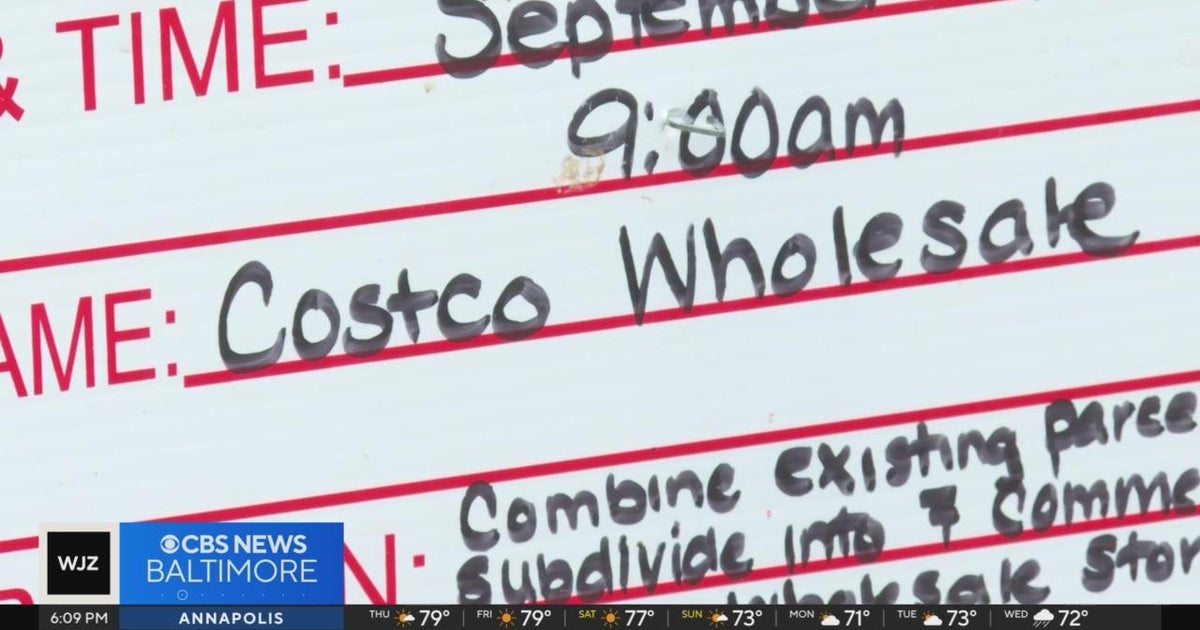 & TIME: September
9:00am
AME: Costco Wholesale
N: Combine existing parce
subdivide into 7 Comme
wholesale Stor
WJZ
CBS NEWS
BALTIMORE
6:09 PM ANNAPOLIS THU 79° FRI 79° SAT 77° SUN 73° MON 71° TUE 73° WED 72°